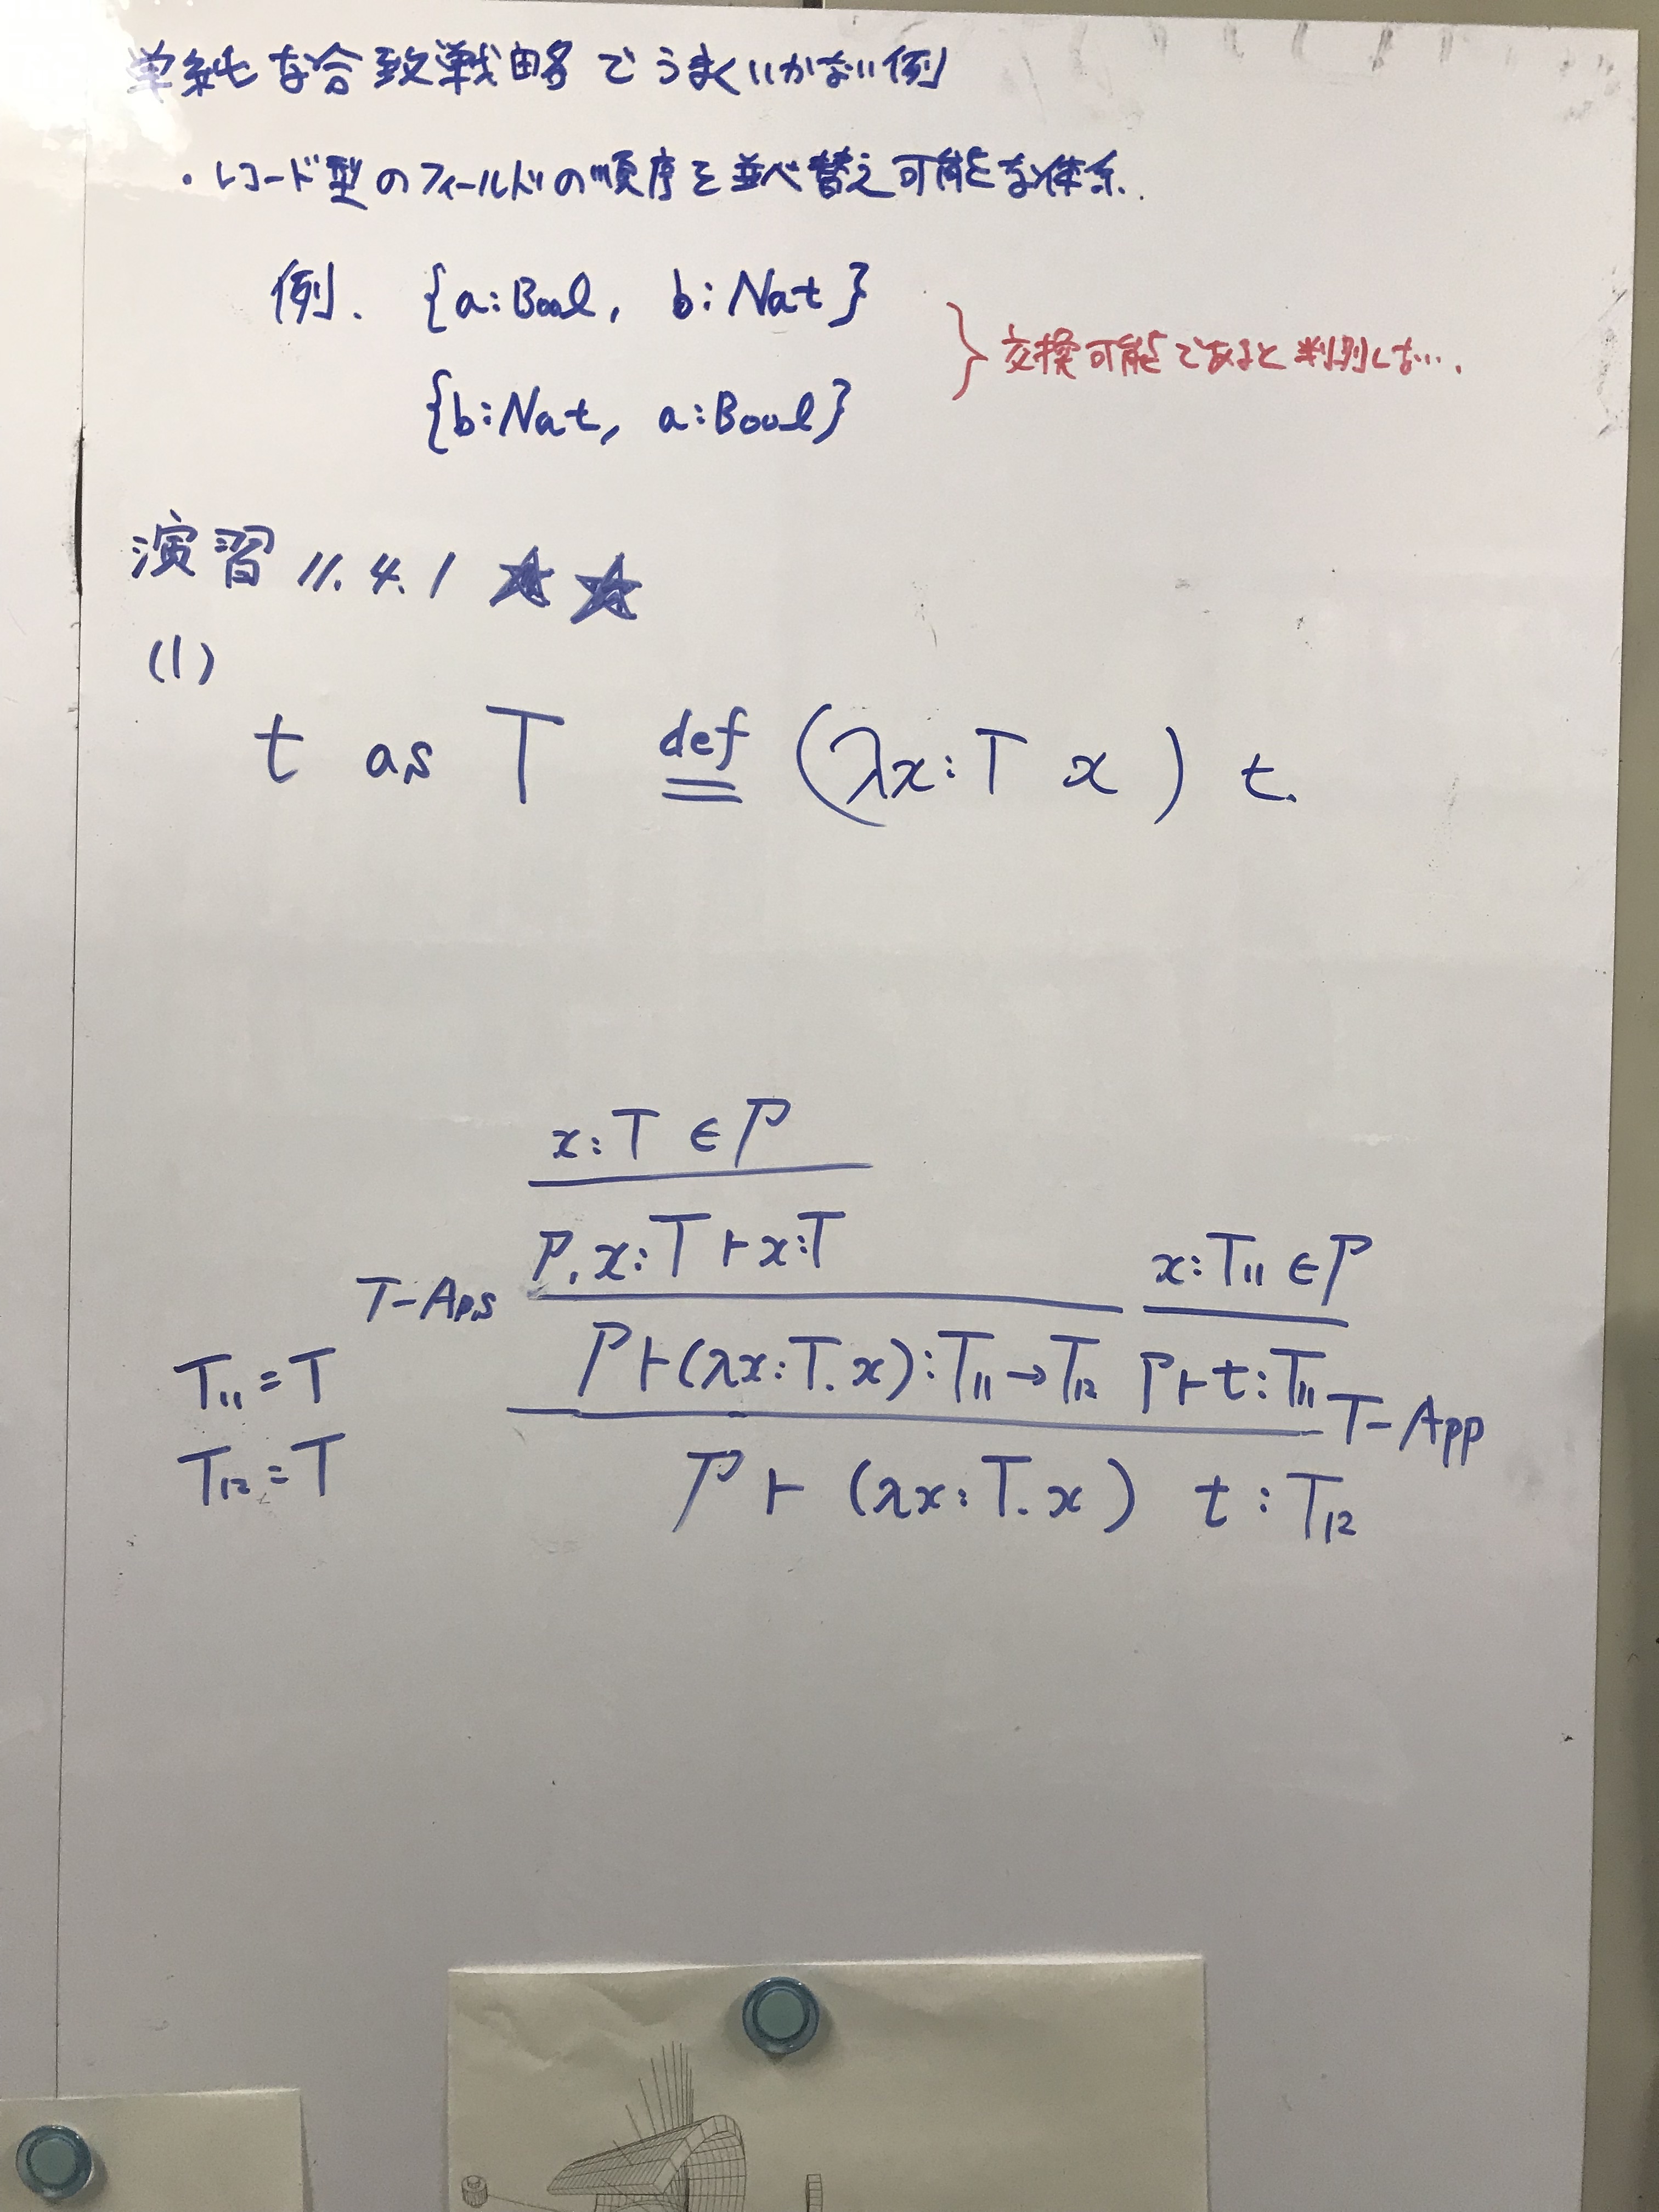 単純な合致戦略でうまくいかない例
・レコード型のフィールドの順序を並べ替え可能な体系.
例. {a:Bool, b:Nat}
{b:Nat, a:Bool}
交換可能であると判別しな….
演習 11.4.1 ★★
(1)
t as T def= (λx:T x) t.
x:T ∈ Γ
Γ, x:T ⊢ x:T
x:T₁₁ ∈ Γ
T-Aps
Γ ⊢ (λx:T. x):T₁₁→T₁₂ Γ ⊢ t:T₁₁
T-App
Γ ⊢ (λx:T.x) t:T₁₂
T₁₁=T
T₁₂=T